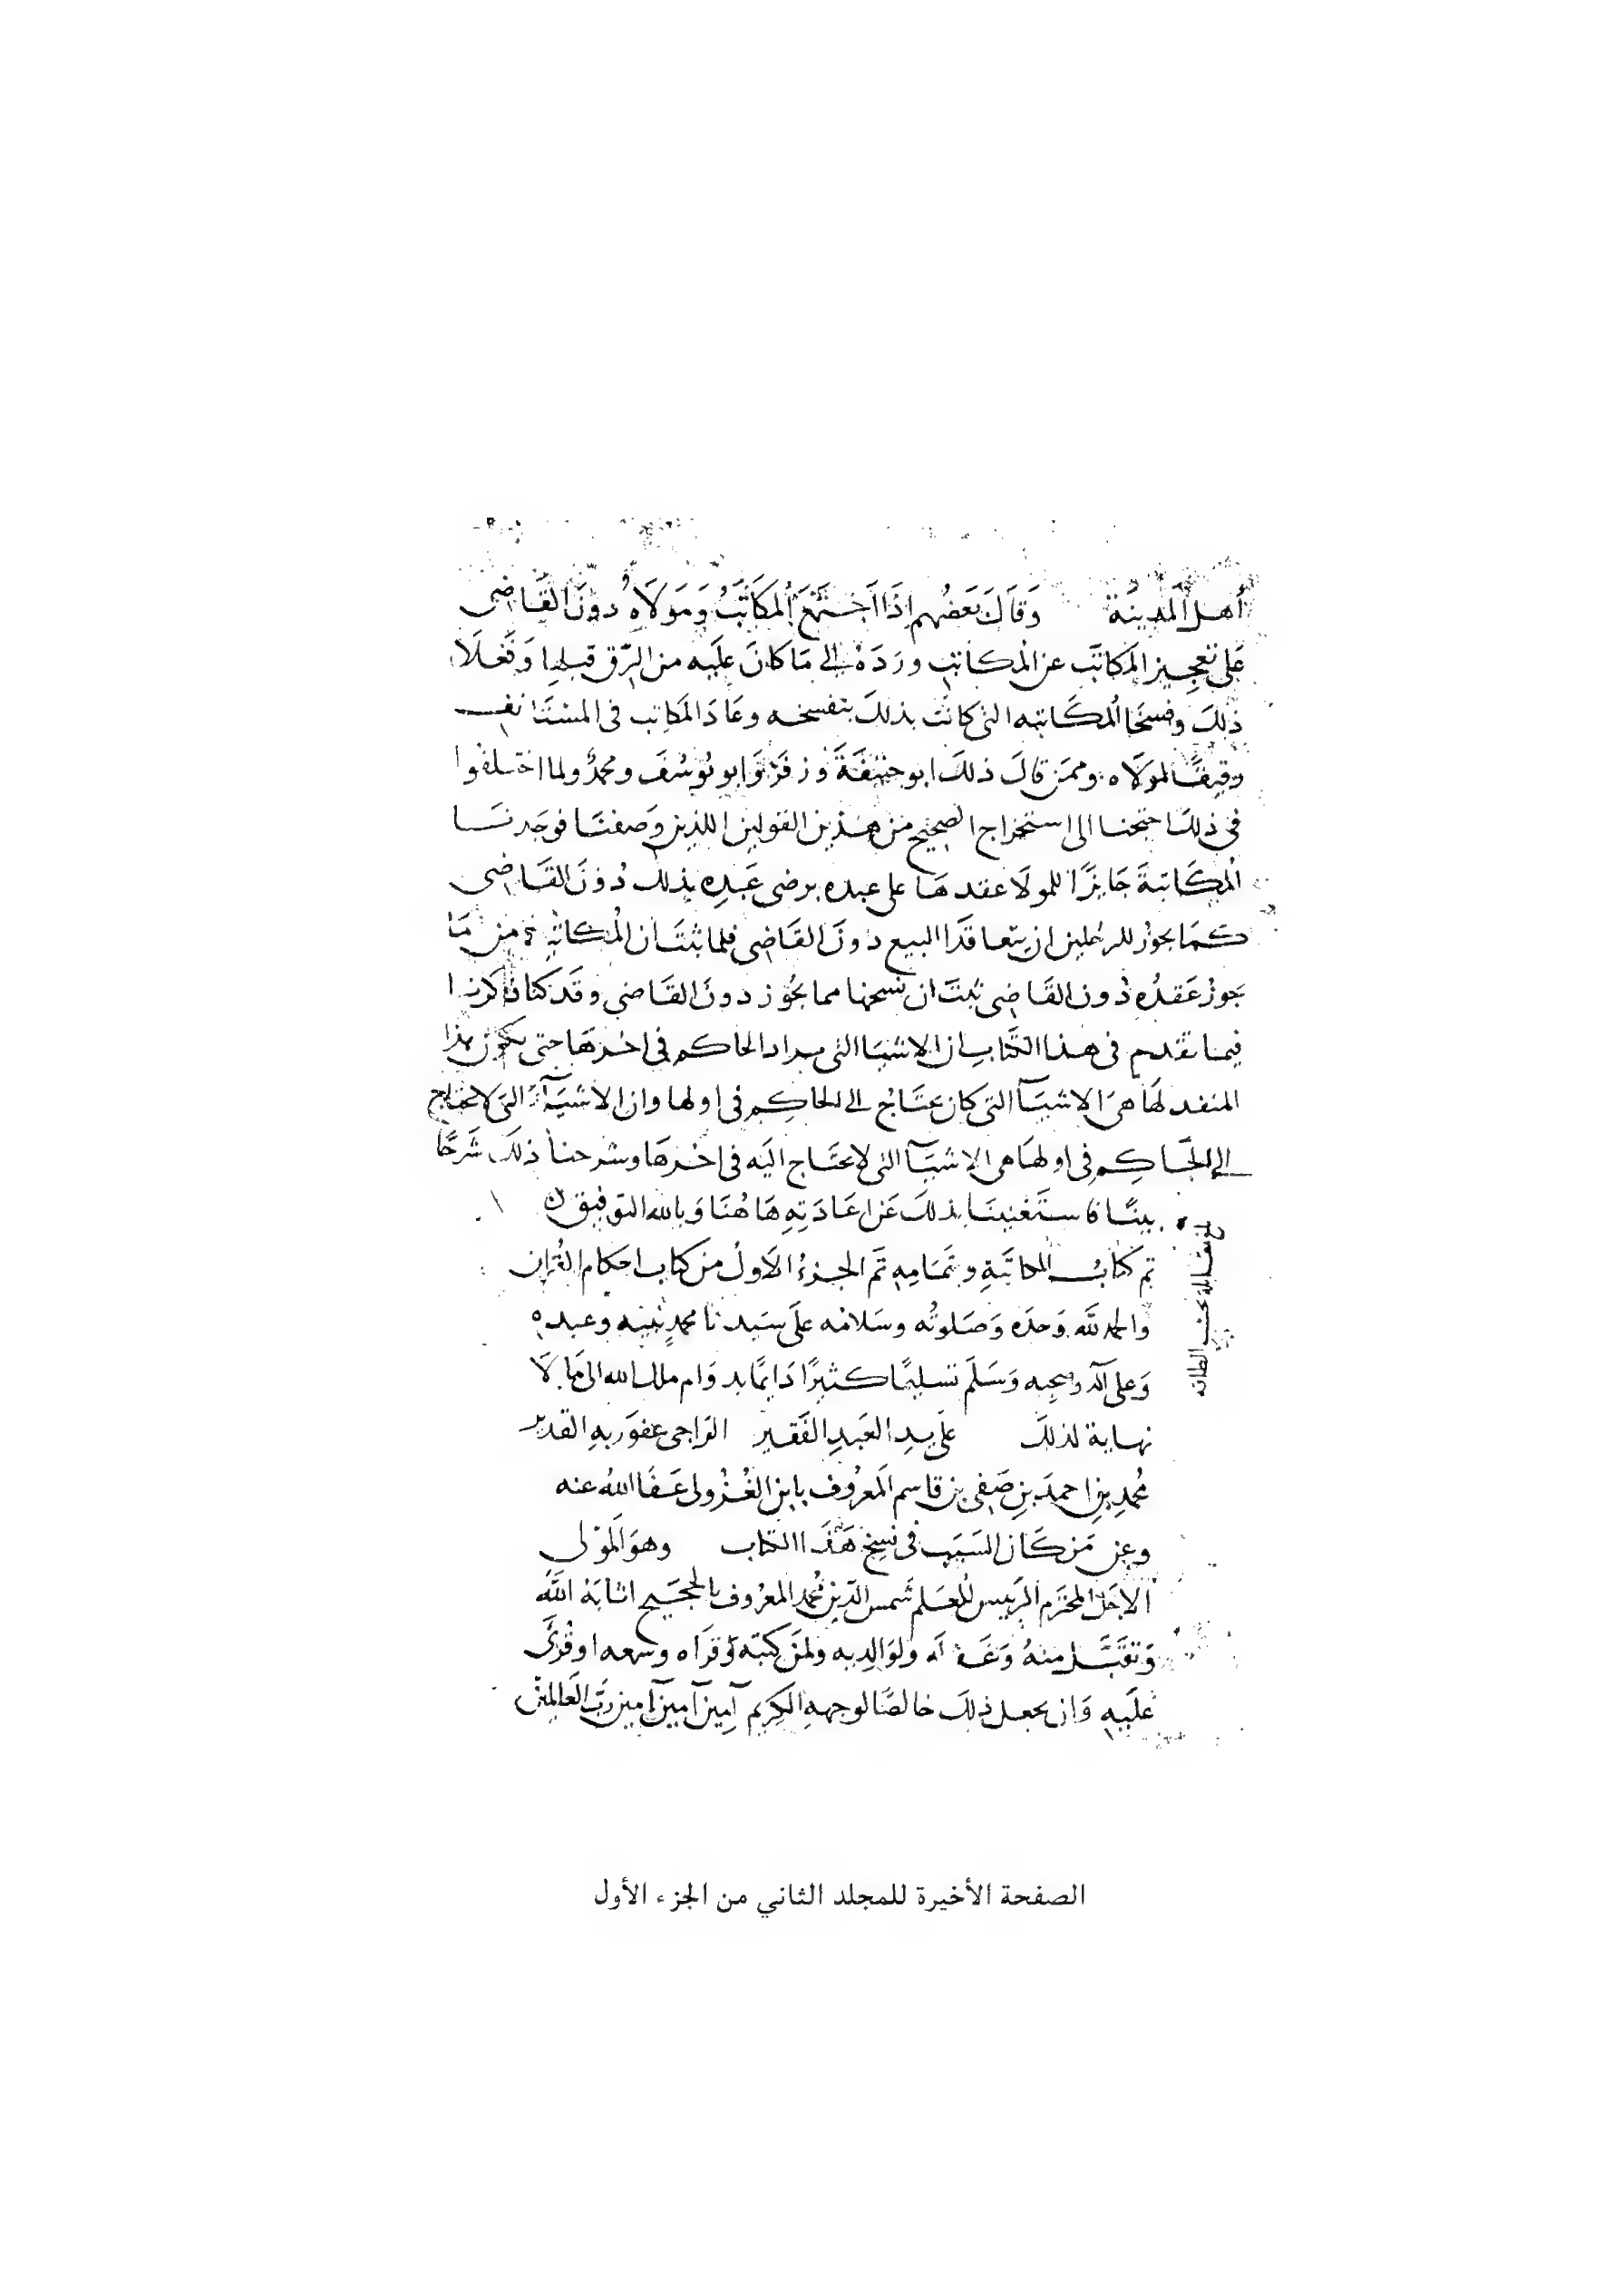 أهل المدينة وقال بعضهم إذا اجتمع المكاتب ومولاه دون القاضي
على تعجيز المكاتب عن المكاتبة ورده إلى ما كان عليه من الرق قبلها وفعلا
ذلك وفسخا المكاتبه التي كانت بذلك بتفسخه وعاد المكاتب في المستأنف
رقيقًا لمولاه وممن قال ذلك ابو حنيفة وزفر وابو يوسف ومحمد ولما اختلفوا
في ذلك احتجنا الى استخراج الصحيح من هذين القولين اللذين وصفنا فوجدنا
المكاتبة جايزًا للمولا عقدها على عبده برضى عبده بذلك دون القاضي
كما يجوز للرجلين ان يتعاقدا البيع دون القاضي فلما ثبت ان المكاتبة من ما
يجوز عقده دون القاضي ثبت ان فسخها مما يجوز دون القاضي وقد كنا ذكرنا
فيما تقدم في هذا الكتاب ان الاشيا التي يراد الحاكم في اخرها حتى يكون هذا
المنفد لها هي الاشيآ التي كان يحتاج الى الحاكم في اولها وان الاشيآء التي لا يحتاج
الى الحاكم في اولها هي الاشيآ التي لا يحتاج اليه في اخرها وشرحنا ذلك شرحًا
بينًا فاستغنينا بذلك عن اعادته هاهنا وبالله التوفيق
تم كتاب المكاتبة وبتمامه تم الجزء الاول من كتاب احكام القران
والحمد لله وحده وصلوته وسلامه على سيدنا محمد نبيه وعبده
وعلى آله وصحبه وسلم تسليمًا كثيرًا دايمًا بدوام ملك الله الى ما لا
نهاية لذلك على يد العبد الفقير الراجي عفو ربه القدير
محمد بن احمد بن صفي بن قاسم المعروف بابن الغزولي عفا الله عنه
وعن من كان السبب في نسخ هذا الكتاب وهو المولى
الاجل المحترم الرييس المعلم شمس الدين محمد المعروف بالحجيج اثابه الله
وتقبل منه وغفر له ولوالديه ولمن كتبه وقراه وسمعه او قرئ
عليه وان يجعل ذلك خالصًا لوجهه الكريم آمين آمين آمين رب العالمين
الصفحة الأخيرة للمجلد الثاني من الجزء الأول